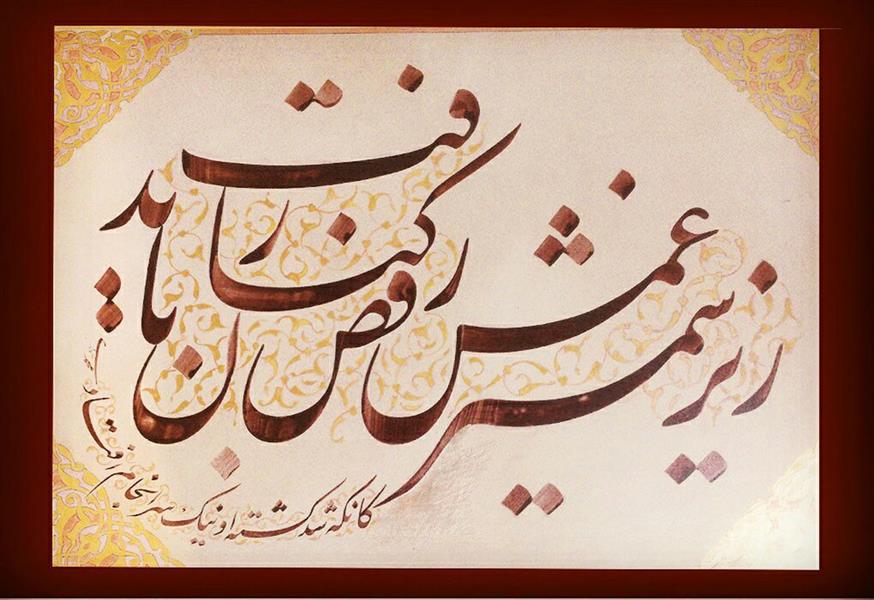 زیر شمشیر غمش رقص کنان باید رفت
کانکه شد کشته او نیک سرانجام افتاد